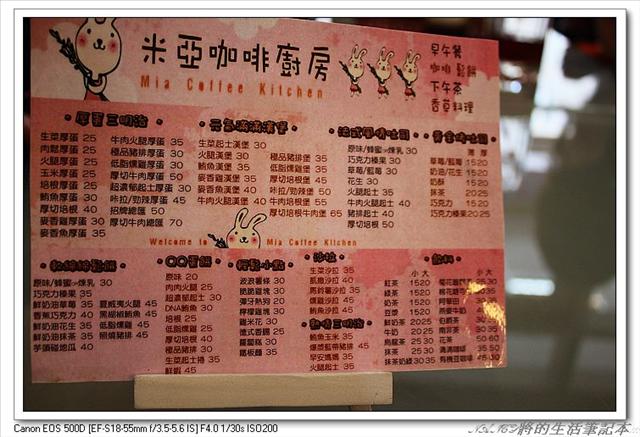 米亞咖啡廚房
Mia Coffee Kitchen
早午餐
咖啡 鬆餅
下午茶
香草料理
厚蛋三明治
生菜厚蛋 25
肉鬆厚蛋 25
火腿厚蛋 25
玉米厚蛋 25
培根厚蛋 25
鮪魚厚蛋 30
麥香厚蛋 30
麥香雞厚蛋 30
牛肉火腿厚蛋 35
極品豬排厚蛋 30
低脂燻雞厚蛋 30
厚切牛肉厚蛋 50
超濃郁起士厚蛋 30
咔拉/勁辣厚蛋 45
招牌總匯 50
厚切牛肉總匯 70
元氣滿滿漢堡
生菜起士漢堡 30
火腿漢堡 30
鮪魚漢堡 35
麥香雞漢堡 35
麥香漢堡 30
牛肉火腿漢堡 40
極品豬排堡 35
低脂燻雞堡 35
厚切培根堡 45
咔拉/勁辣堡 50
厚切牛肉堡 55
厚切培根牛肉堡 65
法式風情吐司
原味/蜂蜜or煉乳 30
巧克力榛果 30
草莓/藍莓 30
花生 30
火腿起士 35
牛肉火腿起士 40
豬排起士 40
厚切培根 50
黃金烤吐司
薄 厚
草莓/藍莓 15 20
奶油/花生 15 20
奶酥 15 20
抹茶 20 25
巧克力 15 20
巧克力榛果 20 25
Welcome to Mia Coffee Kitchen
和綿綿鬆餅
原味/蜂蜜or煉乳 30
巧克力榛果 35
鮮奶油草莓 35
香蕉巧克力 40
鮮奶油花生 35
鮮奶油抹茶 35
芋頭碰地瓜 40
夏威夷火腿 45
黑胡椒鮪魚 45
低脂燻雞 45
照燒豬排 45
QQ蛋餅
原味 20
肉鬆玉米 30
超濃郁起士 30
DNA鮪魚 30
培根 25
低脂燻雞 25
厚切牛肉 40
極品豬排 30
生菜起士捲 35
鮮蝦 45
輕鬆小點
波浪薯條 30
脆脆雞塊 30
彈牙熱狗 20
檸檬雞塊 30
雞米花 30
德式香腸 25
蘿蔔糕 30
鐵板麵 35
沙拉
生菜沙拉 35
凱撒沙拉 40
馬鈴薯沙拉 35
燻雞沙拉 45
鮪魚沙拉 45
熱情三明治
鮪魚玉米 35
爆漿藍帶豬排 45
早安媽媽 35
火腿起士 35
飲料
小 大
紅茶 15 20
綠茶 15 20
奶茶 15 20
豆漿 15 20
鮮奶茶 20 25
牛奶 20 25
烏龍茶 25 30
抹茶 25 30
抹茶奶綠 30 35
小 大
花茶 50 60
Canon EOS 500D [EF-S18-55mm f/3.5-5.6 IS] F4.0 1/30s ISO200
將的生活筆記本